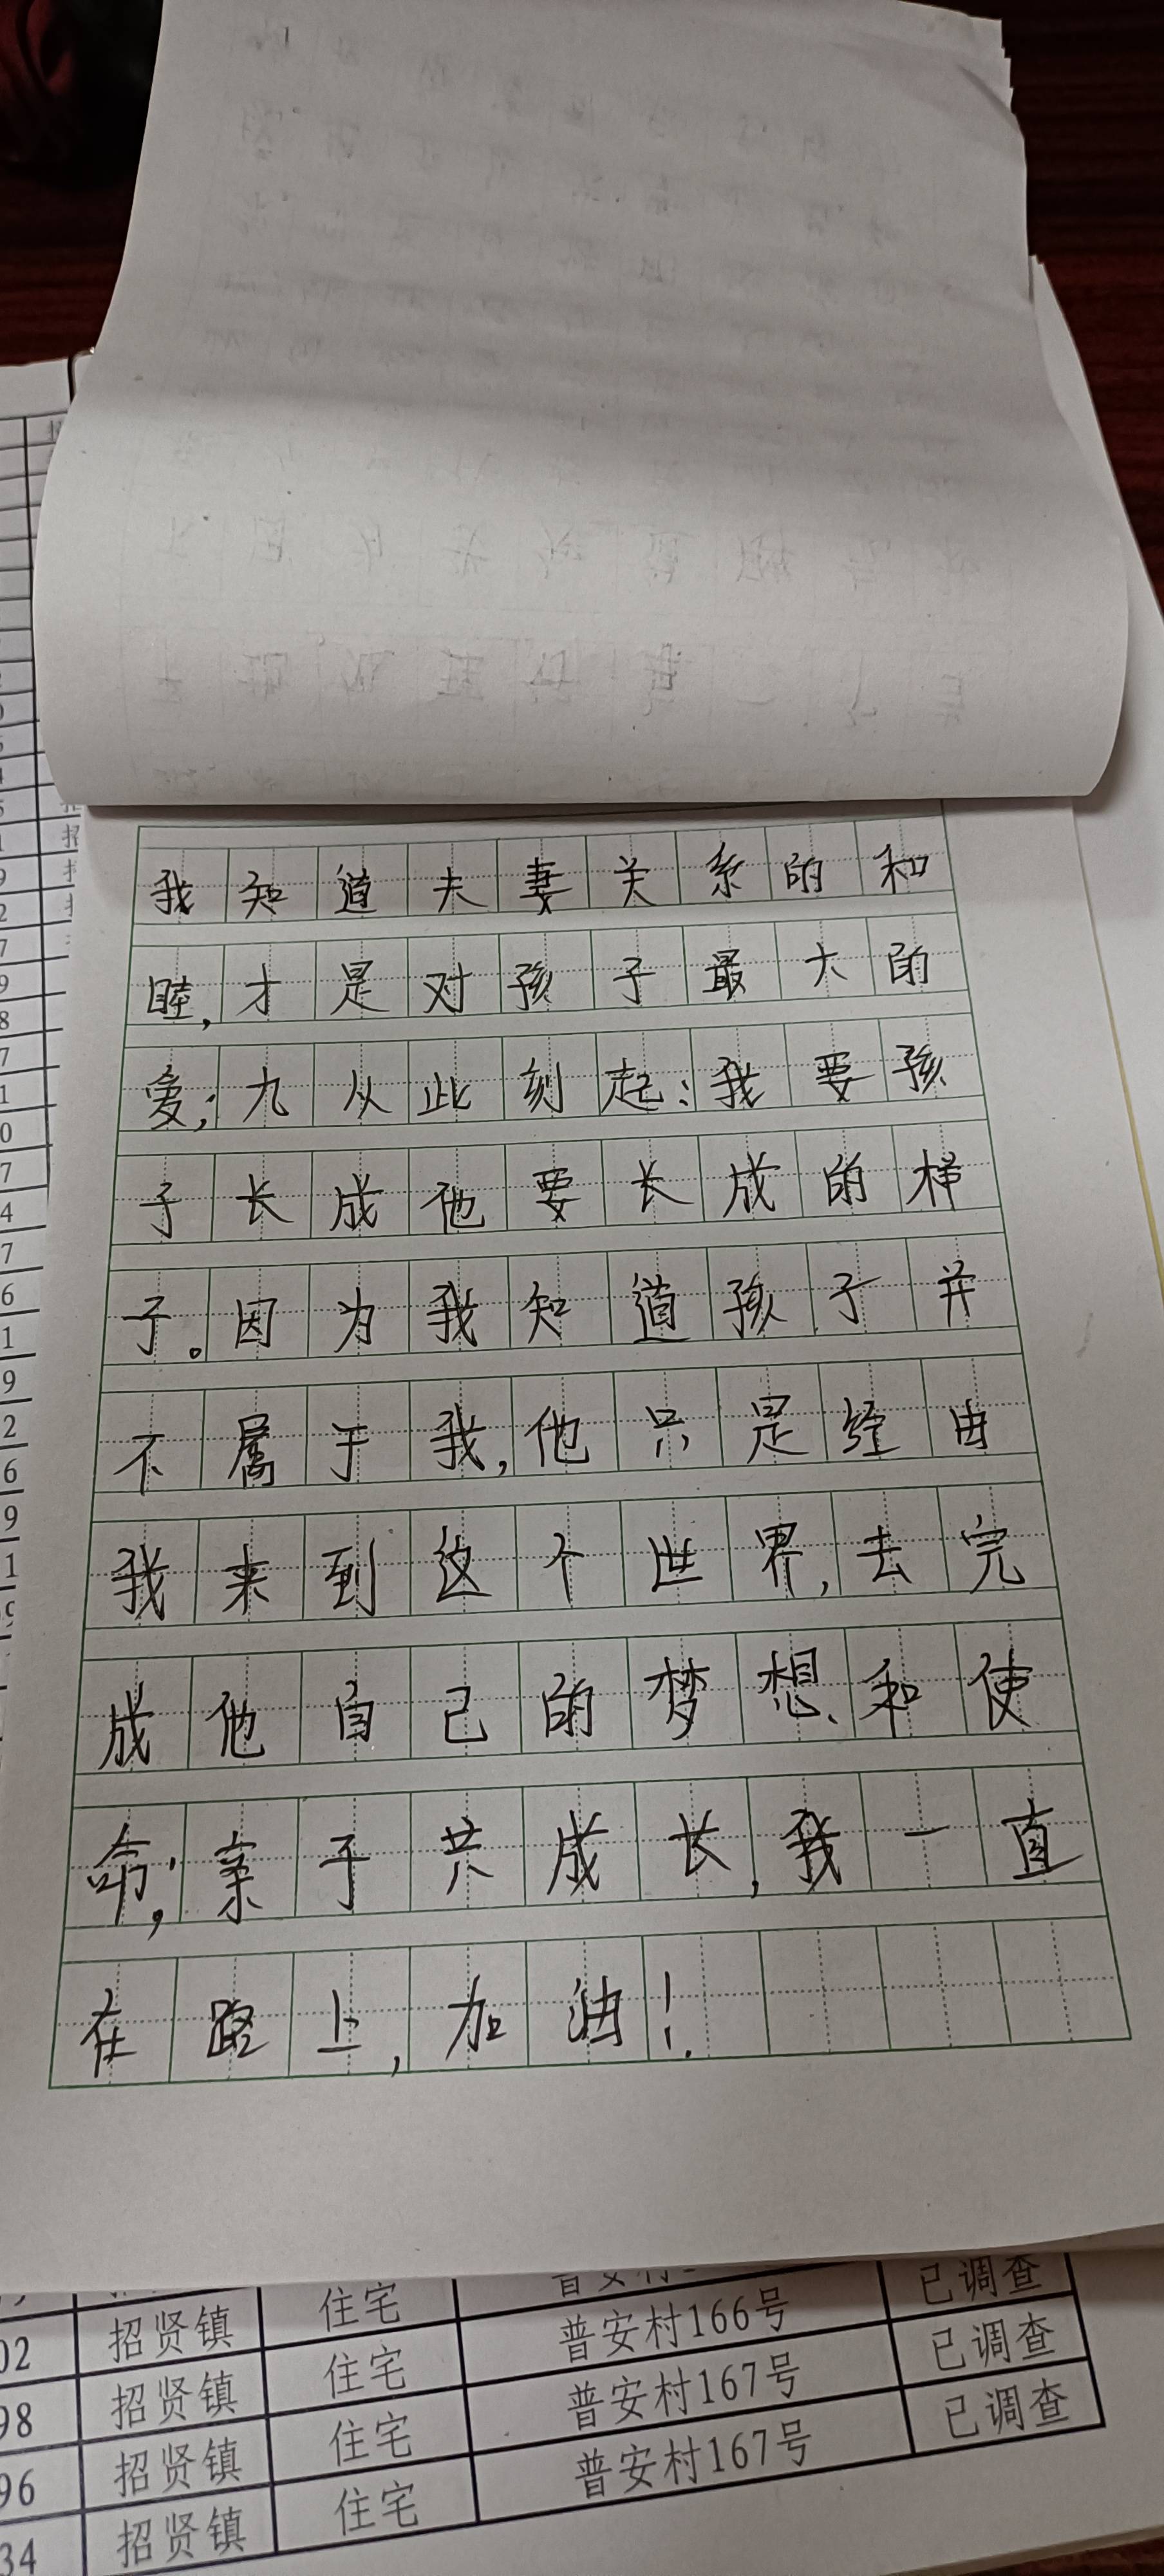 我知道夫妻关系的和
睦,才是对孩子最大的
爱;九从此刻起:我要孩
子长成他要长成的样
子。因为我知道孩子并
不属于我,他只是经由
我来到这个世界,去完
成他自己的梦想、和使
命;亲子共成长,我一直
在路上,加油!
02 招贤镇 住宅 普安村166号 已调查
98 招贤镇 住宅 普安村167号 已调查
96 招贤镇 住宅 普安村167号 已调查
34 招贤镇 住宅